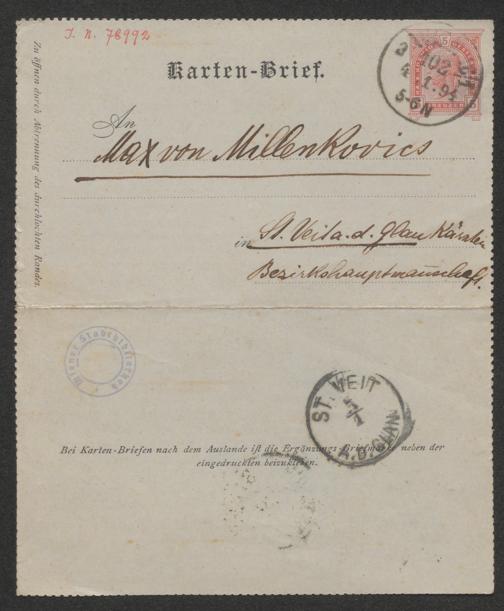 J. N. 78992
Karten-Brief.
5
102
4. 1. 94
5-6N
An
Max von Millenkovics
in St. Veit a. d. Glan Kärnten
Bezirkshauptmannschaft.
Zu öffnen durch Abtrennung des durchlochten Randes.
Wiener Stadtbibliothek
ST. VEIT
5/1
A.D. GLAN
Bei Karten-Briefen nach dem Auslande ist die Ergänzungs-Briefmarke neben der
eingedruckten beizukleben.